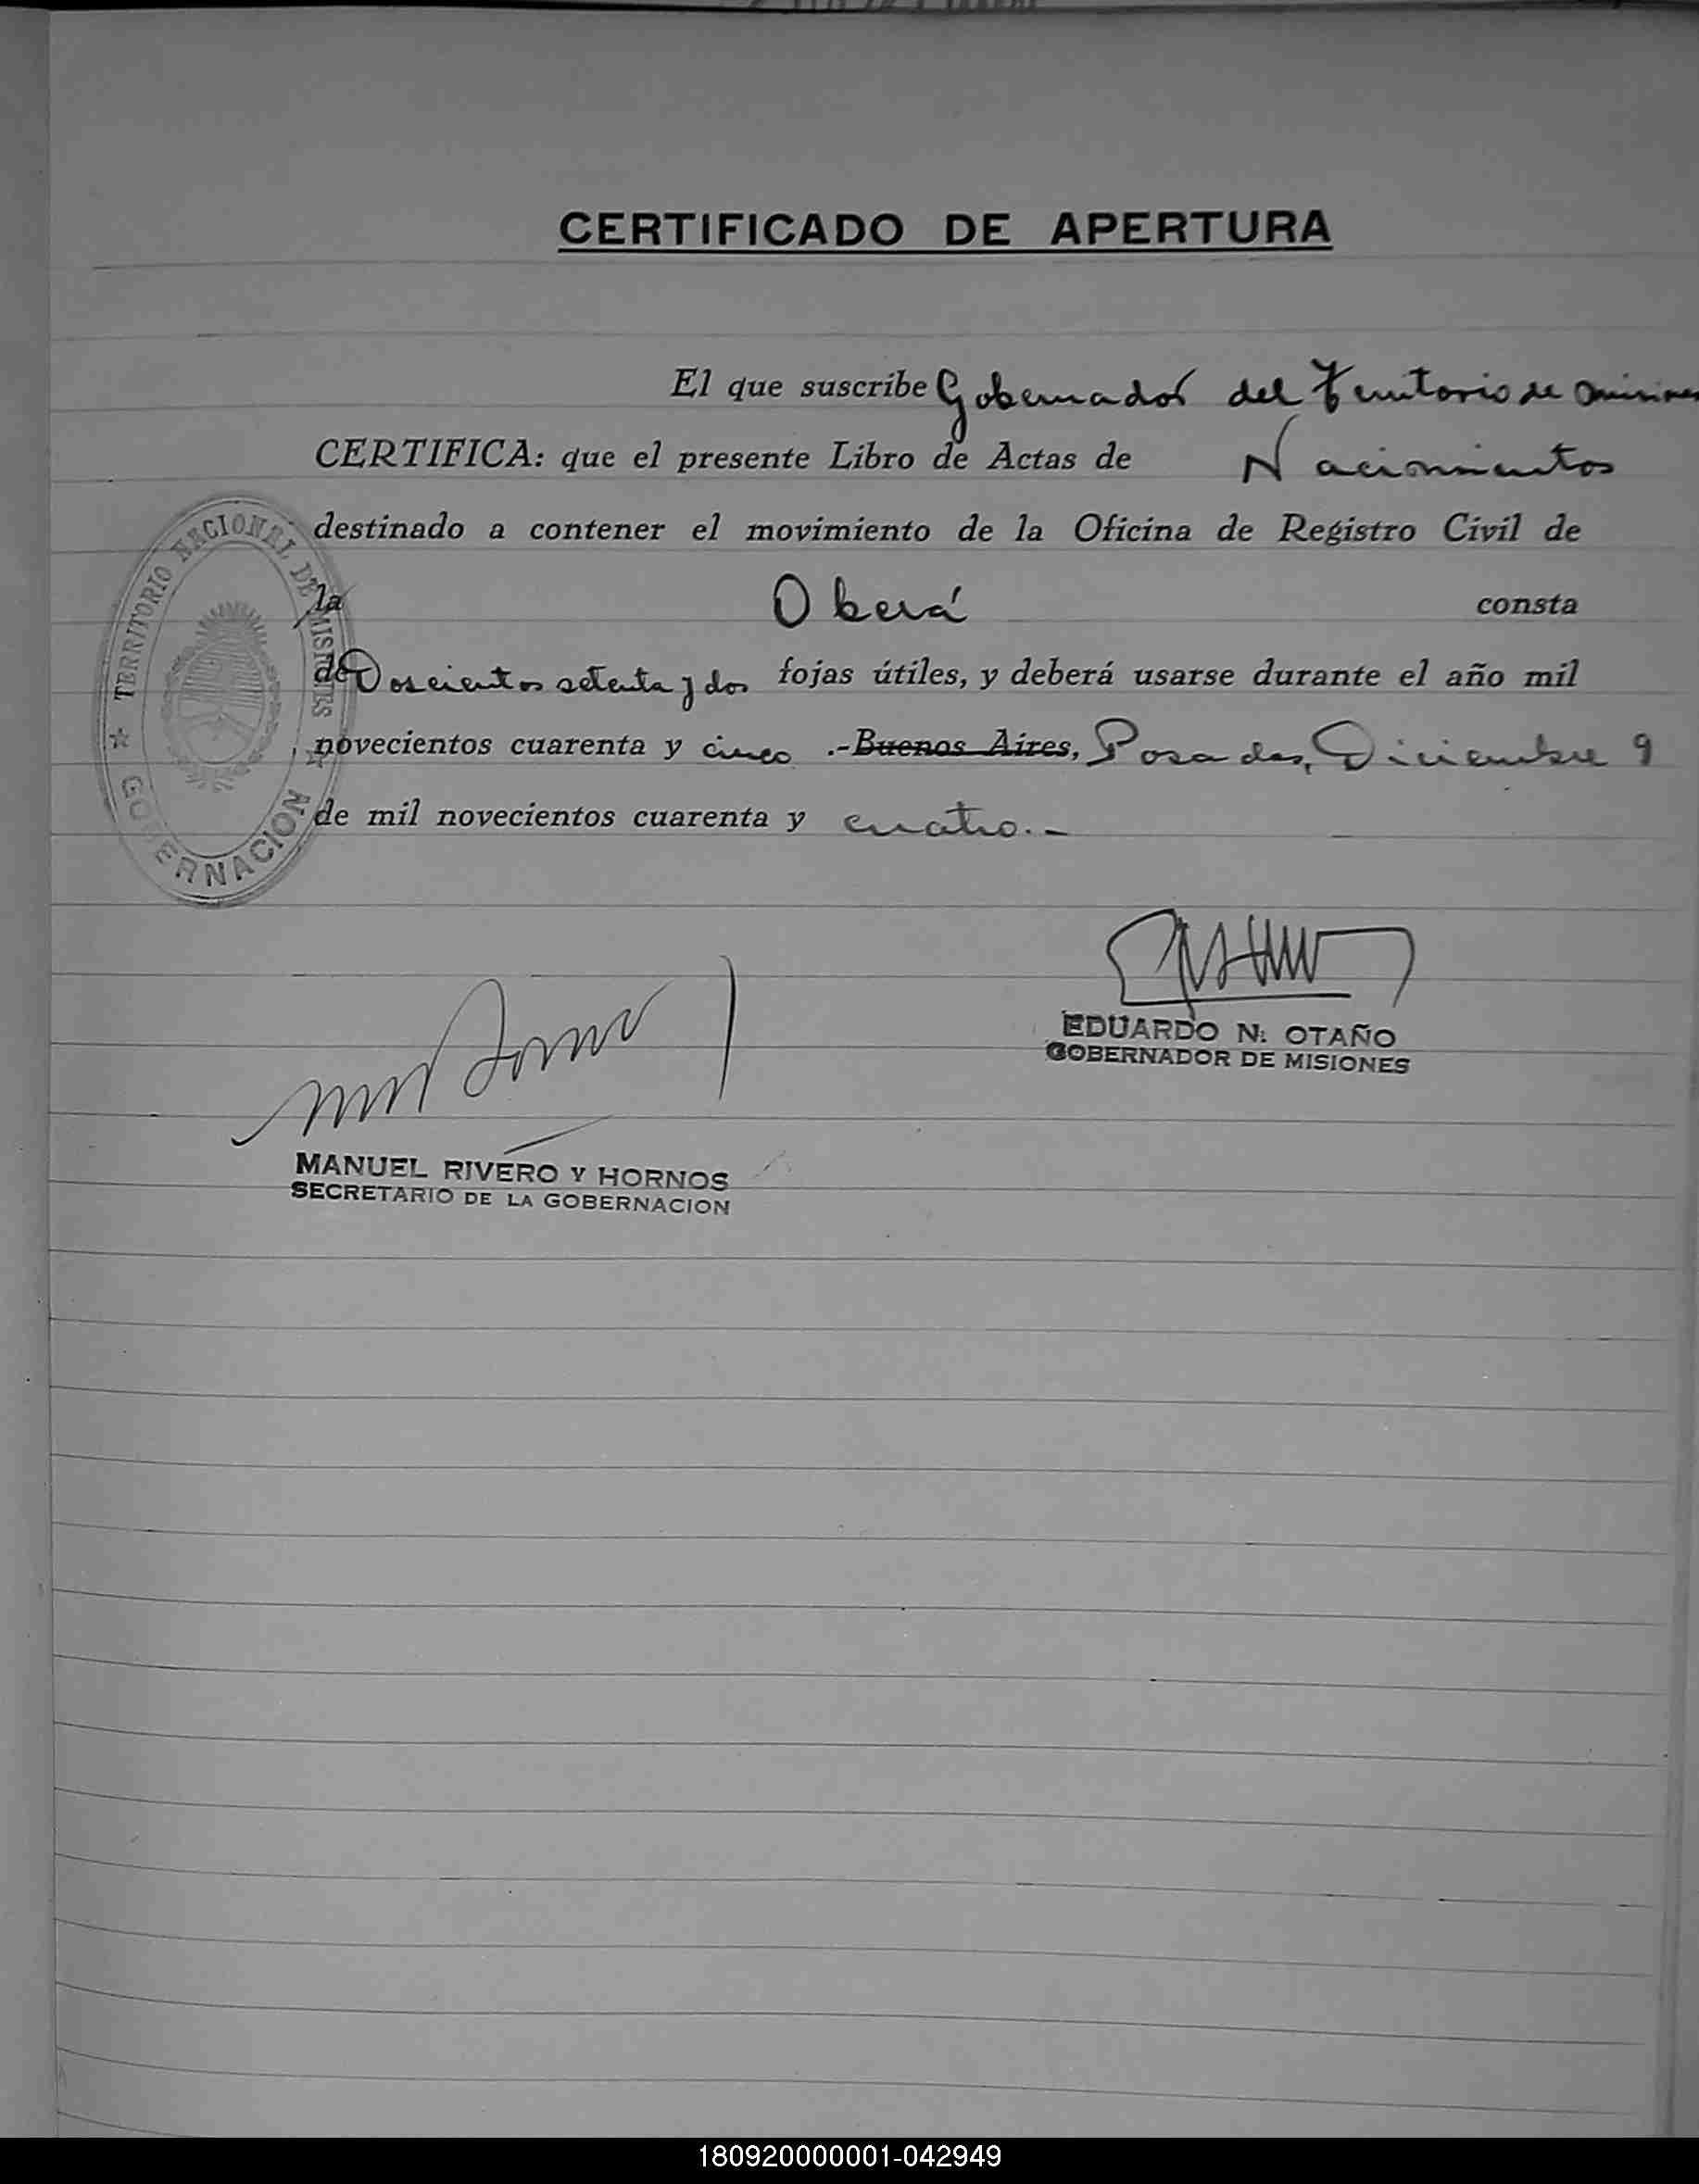 CERTIFICADO DE APERTURA
El que suscribe Gobernador del Territorio de Misiones
CERTIFICA: que el presente Libro de Actas de Nacimientos
destinado a contener el movimiento de la Oficina de Registro Civil de
la Oberá consta
de Doscientos setenta y dos fojas útiles, y deberá usarse durante el año mil
novecientos cuarenta y cinco .-Buenos Aires, Posadas, Diciembre 9
de mil novecientos cuarenta y cuatro.-
TERRITORIO NACIONAL DE MISIONES
GOBERNACION
EDUARDO N. OTAÑO
GOBERNADOR DE MISIONES
MANUEL RIVERO Y HORNOS
SECRETARIO DE LA GOBERNACION
180920000001-042949